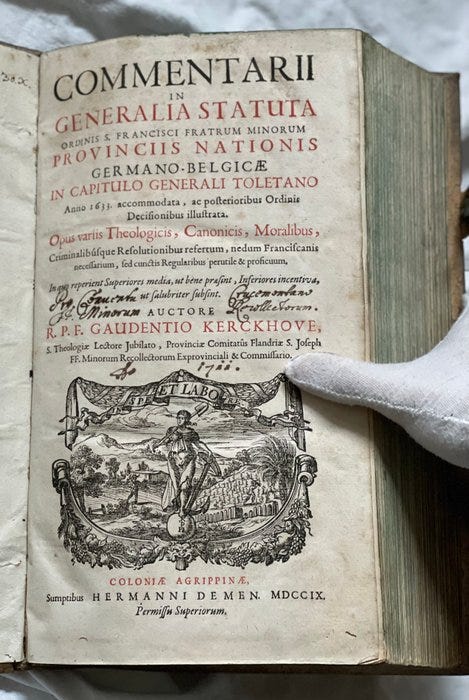 COMMENTARII
IN
GENERALIA STATUTA
ORDINIS S. FRANCISCI FRATRUM MINORUM
PROVINCIIS NATIONIS
GERMANO-BELGICÆ
IN CAPITULO GENERALI TOLETANO
Anno 1633. accommodata, ac posterioribus Ordinis
Decisionibus illustrata.
Opus variis Theologicis, Canonicis, Moralibus,
Criminalibúsque Resolutionibus refertum, nedum Franciscanis
necessarium, sed cunctis Regularibus perutile & proficuum,
In quo reperient Superiores media, ut bene præsint, Inferiores incentiva,
Pro Conventu ut salubriter subsint. Crucemontano
Minorum AUCTORE Recollectorum.
R. P. F. GAUDENTIO KERCKHOVE,
S. Theologiæ Lectore Jubilato, Provinciæ Comitatûs Flandriæ S. Joseph
FF. Minorum Recollectorum Exprovinciali & Commissario.
1711.
ET LABORE
COLONIÆ AGRIPPINÆ,
Sumptibus HERMANNI DEMEN. MDCCIX.
Permissu Superiorum.